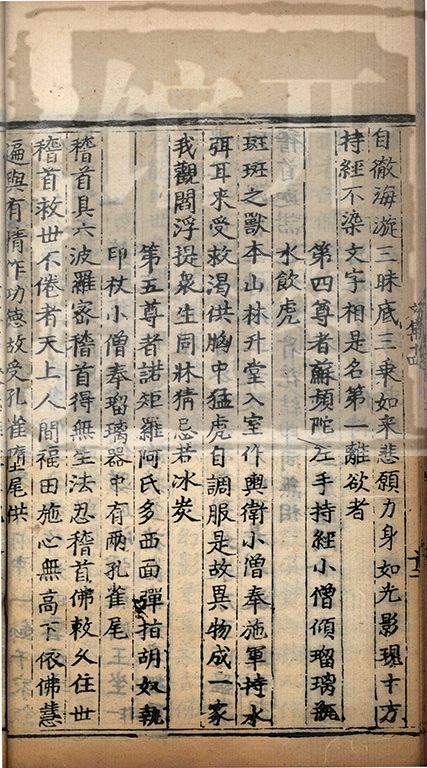 自徹海漩三昧底三乗如來悲願力身如光影現十方
持經不染文字相是名第一離欲者
第四尊者蘇頻陀左手持經小僧傾瑠璃瓶
水飲虎
斑斑之獸本山林升堂入室作輿衛小僧奉施軍持水
弭耳来受救渴供胸中猛虎自調服是故異物成一家
我觀閻浮提衆生同牀猜忌若冰炭
第五尊者諾矩羅阿氏多西面彈指胡奴執
印杖小僧奉瑠璃器中有兩孔雀尾
稽首具六波羅宻稽首得無生法忍稽首佛敕久住世
稽首救世不倦者天上人間福田施心無高下依佛慧
遍與有情作功徳故受孔雀隋尾供